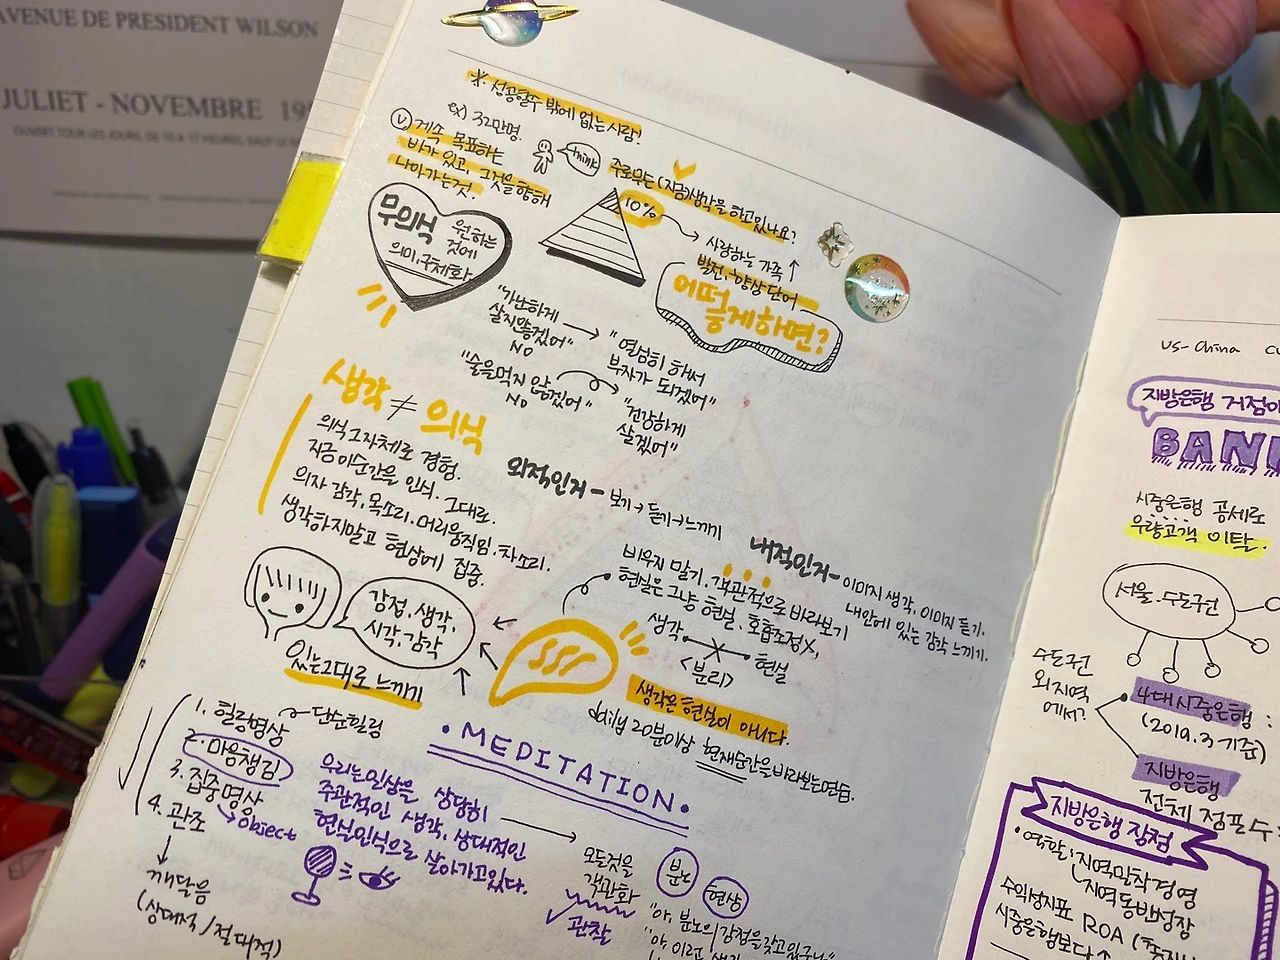 AVENUE DE PRESIDENT WILSON
JUILET - NOVEMBRE
* 성공할수 밖에 없는 사람!
ex) 32만명.
ⓥ 계속 목표하는
바가 있고, 그것을 향해
나아가는것.
think
주로 무슨 (지금) 생각을 하고있나요?
10%
사랑하는 가족 ↑
발전, 향상 단어
어떻게하면?
무의식 원하는
것에
의미, 구체화
"가난하게
살지않겠어" →
NO
"열심히 하서
부자가 되겠어"
"술을먹지 않겠어"
NO
"건강하게
살겠어"
생각 ≠ 의식
의식 그자체로 경험.
지금 이순간을 인식. 그대로.
의자 감각, 목소리, 머리움직임, 차소리.
생각하지말고 현상에 집중.
외적인거 - 보기→듣기→느끼기
내적인거 - 이미지 생각, 이미지 듣기.
내안에 있는 감각 느끼기.
비우지 말기. 객관적으로 바라보기
현실은 그냥 현실. 호흡조정X,
생각 현실
<분리>
감정, 생각,
시각, 감각
있는그대로 느끼기
생각은 현실이 아니다.
daily 20분이상 현재순간을 바라보는연습.
• MEDITATION •
1. 힐링명상 단순힐링
2. 마음챙김
3. 집중명상
object
4. 관조
↓
깨달음
(상대적/절대적)
우리는 일상을 상당히
주관적인 생각, 상대적인
현실인식으로 살아가고있다.
모든것을
객관화
✓ 관찰
분노
현상
"아, 분노의 감정을 갖고있구나"
"아, 이런 생각
US-China
지방은행 거점
BANK
시중은행 공세로
우량고객 이탈.
서울.수도권
수도권
외지역
에서?
• 4대시중은행 :
(2019.3 기준)
• 지방은행
전체 점포수 :
지방은행 장점
• 역할: 지역밀착경영
지역동반성장
수익성지표 ROA
시중은행보다↑